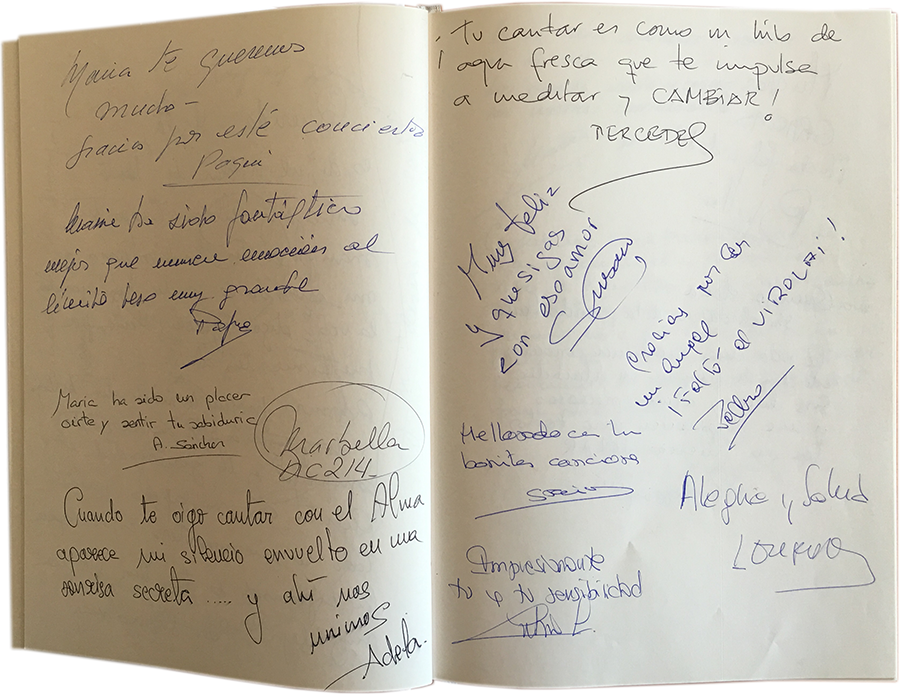 Maria te queremos
mucho -
Gracias por esté concierto
Paqui
ha sido fantástico
mejor que nunca emoción al
límite beso muy grande
Maria ha sido un placer
oirte y sentir tu sabiduria
A. Sánchez
Marbella
DC214
Cuando te oigo cantar con el Alma
aparece mi silencio envuelto en una
sonrisa secreta ..... y ahí nos
unimos
Adela.
¡ Tu cantar es como un hilo de
agua fresca que te impulsa
a meditar y CAMBIAR!
MERCEDES
Muy feliz
y que sigas
con eso amor
Susana
Gracias por ser
mi angel
¡FALTÓ el VIROLAI!
He llorado con tu
bonitas canciones
Alegria y Salud
LORENA
Impresionante
tu y tu sensibilidad